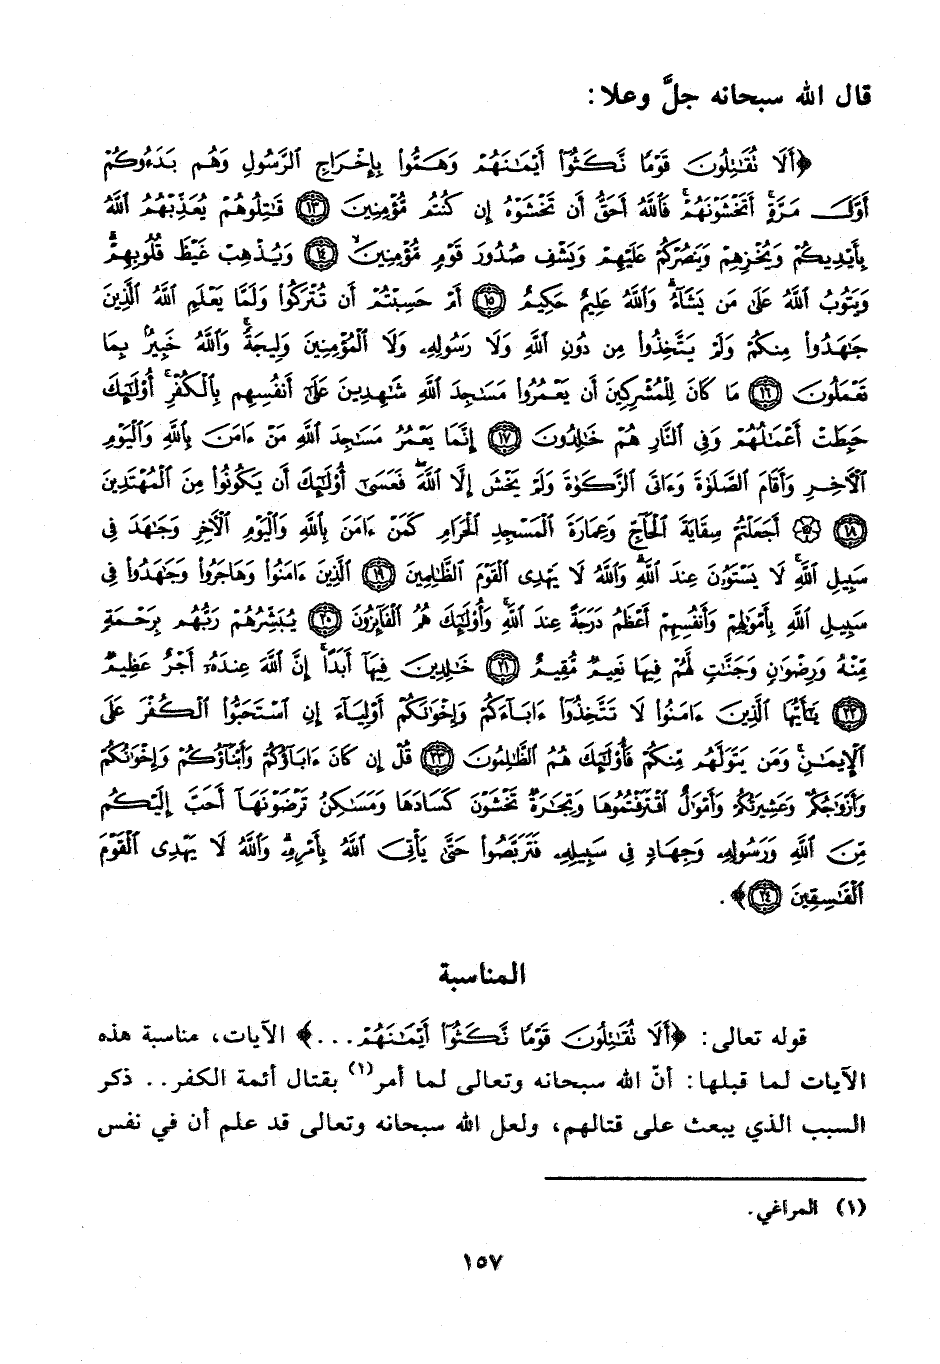 قال الله سبحانه جلَّ وعلا:
﴿أَلَا نُقَٰتِلُونَ قَوْمًا نَّكَثُوٓا۟ أَيْمَٰنَهُمْ وَهَمُّوا۟ بِإِخْرَاجِ ٱلرَّسُولِ وَهُم بَدَءُوكُمْ
أَوَّلَ مَرَّةٍ ۚ أَتَخْشَوْنَهُمْ ۚ فَٱللَّهُ أَحَقُّ أَن تَخْشَوْهُ إِن كُنتُم مُّؤْمِنِينَ ⁧١٣⁩ قَٰتِلُوهُمْ يُعَذِّبْهُمُ ٱللَّهُ
بِأَيْدِيكُمْ وَيُخْزِهِمْ وَيَنصُرْكُمْ عَلَيْهِمْ وَيَشْفِ صُدُورَ قَوْمٍ مُّؤْمِنِينَ ۙ ١٤ وَيُذْهِبْ غَيْظَ قُلُوبِهِمْ ۗ
وَيَتُوبُ ٱللَّهُ عَلَىٰ مَن يَشَآءُ ۗ وَٱللَّهُ عَلِيمٌ حَكِيمٌ ١٥ أَمْ حَسِبْتُمْ أَن تُتْرَكُوا۟ وَلَمَّا يَعْلَمِ ٱللَّهُ ٱلَّذِينَ
جَٰهَدُوا۟ مِنكُمْ وَلَمْ يَتَّخِذُوا۟ مِن دُونِ ٱللَّهِ وَلَا رَسُولِهِۦ وَلَا ٱلْمُؤْمِنِينَ وَلِيجَةً ۚ وَٱللَّهُ خَبِيرٌۢ بِمَا
تَعْمَلُونَ ١٦ مَا كَانَ لِلْمُشْرِكِينَ أَن يَعْمُرُوا۟ مَسَٰجِدَ ٱللَّهِ شَٰهِدِينَ عَلَىٰٓ أَنفُسِهِم بِٱلْكُفْرِ ۚ أُو۟لَٰٓئِكَ
حَبِطَتْ أَعْمَٰلُهُمْ وَفِى ٱلنَّارِ هُمْ خَٰلِدُونَ ١٧ إِنَّمَا يَعْمُرُ مَسَٰجِدَ ٱللَّهِ مَنْ ءَامَنَ بِٱللَّهِ وَٱلْيَوْمِ
ٱلْءَاخِرِ وَأَقَامَ ٱلصَّلَوٰةَ وَءَاتَى ٱلزَّكَوٰةَ وَلَمْ يَخْشَ إِلَّا ٱللَّهَ ۖ فَعَسَىٰٓ أُو۟لَٰٓئِكَ أَن يَكُونُوا۟ مِنَ ٱلْمُهْتَدِينَ
١٨ ۞ أَجَعَلْتُمْ سِقَايَةَ ٱلْحَآجِّ وَعِمَارَةَ ٱلْمَسْجِدِ ٱلْحَرَامِ كَمَنْ ءَامَنَ بِٱللَّهِ وَٱلْيَوْمِ ٱلْءَاخِرِ وَجَٰهَدَ فِى
سَبِيلِ ٱللَّهِ ۚ لَا يَسْتَوُۥنَ عِندَ ٱللَّهِ ۗ وَٱللَّهُ لَا يَهْدِى ٱلْقَوْمَ ٱلظَّٰلِمِينَ ١٩ ٱلَّذِينَ ءَامَنُوا۟ وَهَاجَرُوا۟ وَجَٰهَدُوا۟ فِى
سَبِيلِ ٱللَّهِ بِأَمْوَٰلِهِمْ وَأَنفُسِهِمْ أَعْظَمُ دَرَجَةً عِندَ ٱللَّهِ ۚ وَأُو۟لَٰٓئِكَ هُمُ ٱلْفَآئِزُونَ ٢٠ يُبَشِّرُهُمْ رَبُّهُم بِرَحْمَةٍ
مِّنْهُ وَرِضْوَٰنٍ وَجَنَّٰتٍ لَّهُمْ فِيهَا نَعِيمٌ مُّقِيمٌ ٢١ خَٰلِدِينَ فِيهَآ أَبَدًا ۚ إِنَّ ٱللَّهَ عِندَهُۥٓ أَجْرٌ عَظِيمٌ
٢٢ يَٰٓأَيُّهَا ٱلَّذِينَ ءَامَنُوا۟ لَا تَتَّخِذُوٓا۟ ءَابَآءَكُمْ وَإِخْوَٰنَكُمْ أَوْلِيَآءَ إِنِ ٱسْتَحَبُّوا۟ ٱلْكُفْرَ عَلَى
ٱلْإِيمَٰنِ ۚ وَمَن يَتَوَلَّهُم مِّنكُمْ فَأُو۟لَٰٓئِكَ هُمُ ٱلظَّٰلِمُونَ ٢٣ قُلْ إِن كَانَ ءَابَآؤُكُمْ وَأَبْنَآؤُكُمْ وَإِخْوَٰنُكُمْ
وَأَزْوَٰجُكُمْ وَعَشِيرَتُكُمْ وَأَمْوَٰلٌ ٱقْتَرَفْتُمُوهَا وَتِجَٰرَةٌ تَخْشَوْنَ كَسَادَهَا وَمَسَٰكِنُ تَرْضَوْنَهَآ أَحَبَّ إِلَيْكُم
مِّنَ ٱللَّهِ وَرَسُولِهِۦ وَجِهَادٍ فِى سَبِيلِهِۦ فَتَرَبَّصُوا۟ حَتَّىٰ يَأْتِىَ ٱللَّهُ بِأَمْرِهِۦ ۗ وَٱللَّهُ لَا يَهْدِى ٱلْقَوْمَ
ٱلْفَٰسِقِينَ ٢٤﴾.
المناسبة
قوله تعالى: ﴿أَلَا نُقَٰتِلُونَ قَوْمًا نَّكَثُوٓا۟ أَيْمَٰنَهُمْ...﴾ الآيات، مناسبة هذه
الآيات لما قبلها: أنّ الله سبحانه وتعالى لما أمر(١) بقتال أئمة الكفر.. ذكر
السبب الذي يبعث على قتالهم، ولعل الله سبحانه وتعالى قد علم أن في نفس
(١) المراغي.
١٥٧